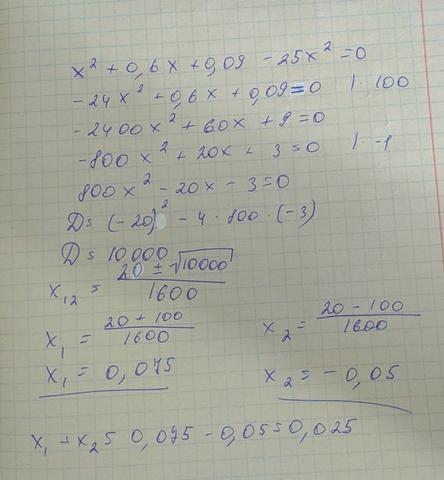 x² + 0,6x + 0,09 - 25x² = 0
-24x² + 0,6x + 0,09 = 0 | · 100
-2400x² + 60x + 9 = 0
-800x² + 20x + 3 = 0 | · -1
800x² - 20x - 3 = 0
D = (-20)² - 4 · 800 · (-3)
D = 10000
x₁₂ = (20 ± √10000) / 1600
x₁ = (20 + 100) / 1600
x₂ = (20 - 100) / 1600
x₁ = 0,075
x₂ = -0,05
x₁ + x₂ = 0,075 - 0,05 = 0,025